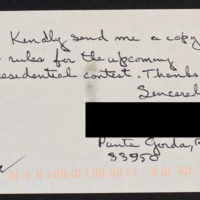 Kendly send me a copy
rules for the upcoming
residential contest. Thanks
Sincerel
Punta Gorda,
33950